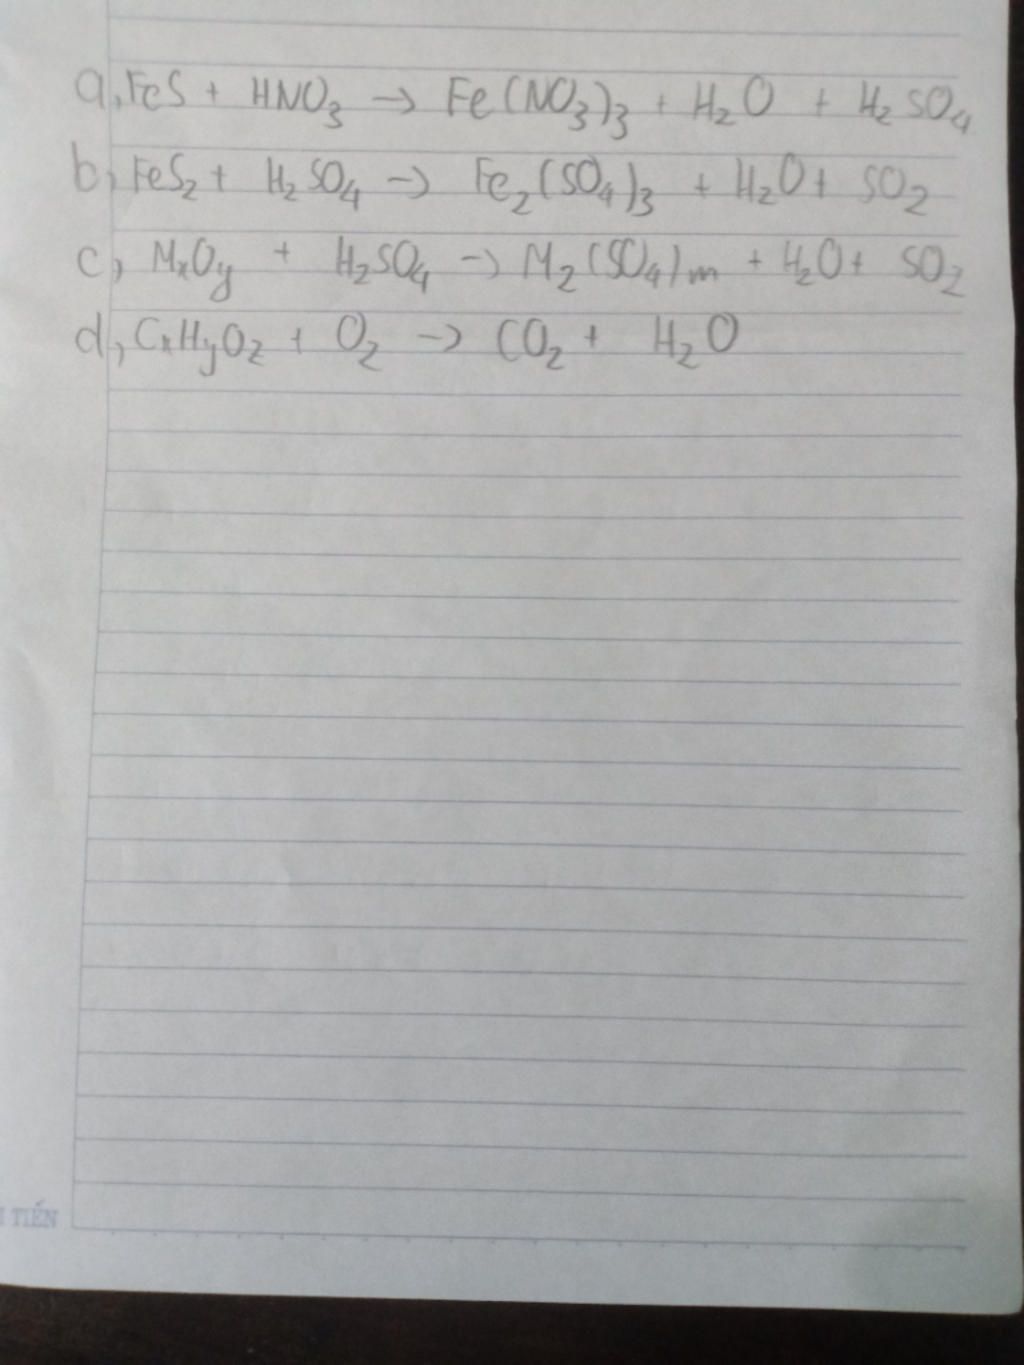 a, FeS + HNO₃ → Fe(NO₃)₃ + H₂O + H₂SO₄
b, FeS₂ + H₂SO₄ → Fe₂(SO₄)₃ + H₂O + SO₂
c, MₓOy + H₂SO₄ → M₂(SO₄)m + H₂O + SO₂
d, CₓHyOz + O₂ → CO₂ + H₂O
TIẾN